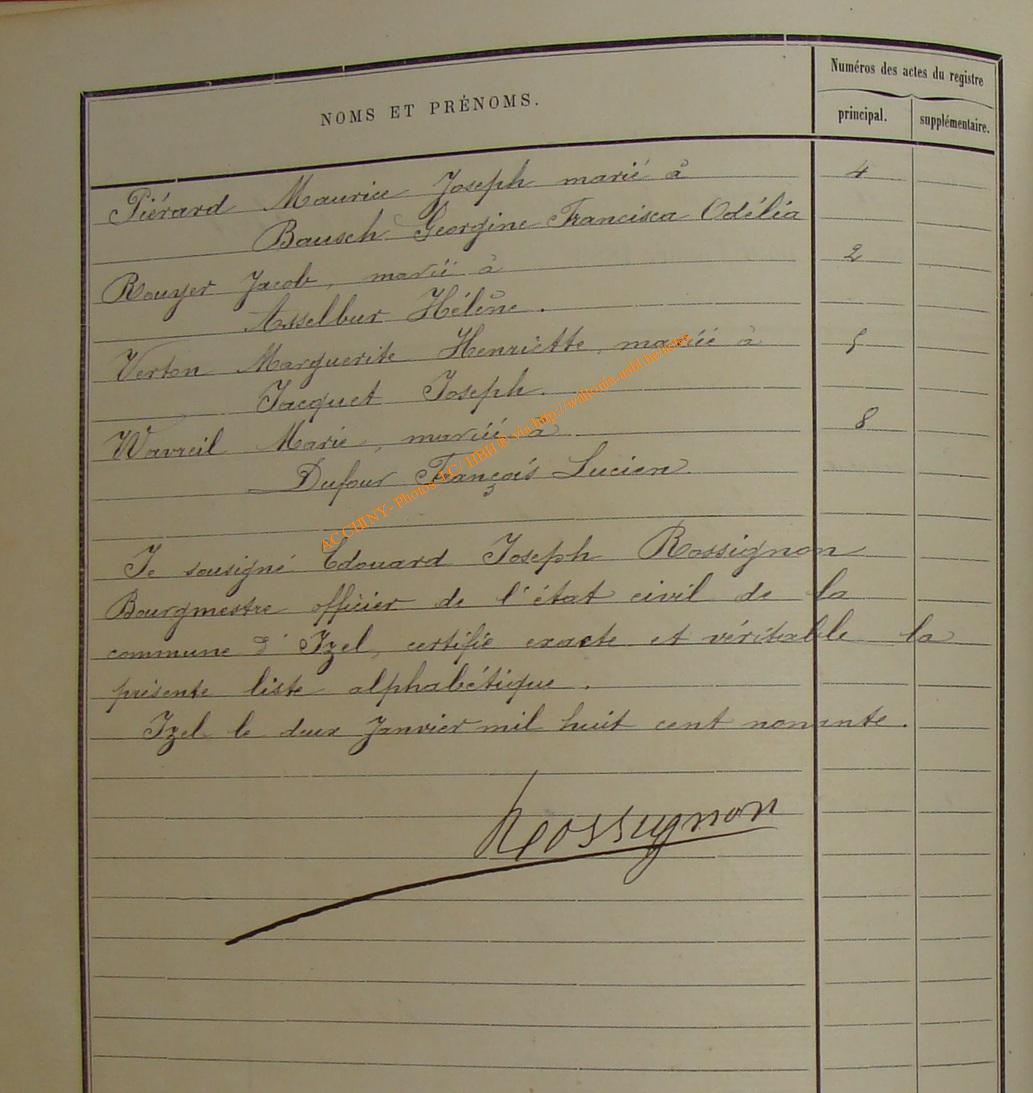 NOMS ET PRÉNOMS.
Numéros des actes du registre
principal.
supplémentaire.
Piérard Maurice Joseph marié à 4
Bausch Georgine Francisca Odélia
Rouyer Jacob, marié à 2
Asselbur Hélène.
Verton Marguerite Henriette, mariée à 5
Jacquet Joseph.
Wavreil Marie, mariée à 8
Dufour François Lucien.
Je sousigné Edouard Joseph Rossignon
Bourgmestre officier de l'état civil de la
commune d'Izel, certifie exacte et véritable la
présente liste alphabétique.
Izel le deux Janvier mil huit cent nonante.
Rossignon
ACCHINY- Photos via http://wallonia-asbl.be